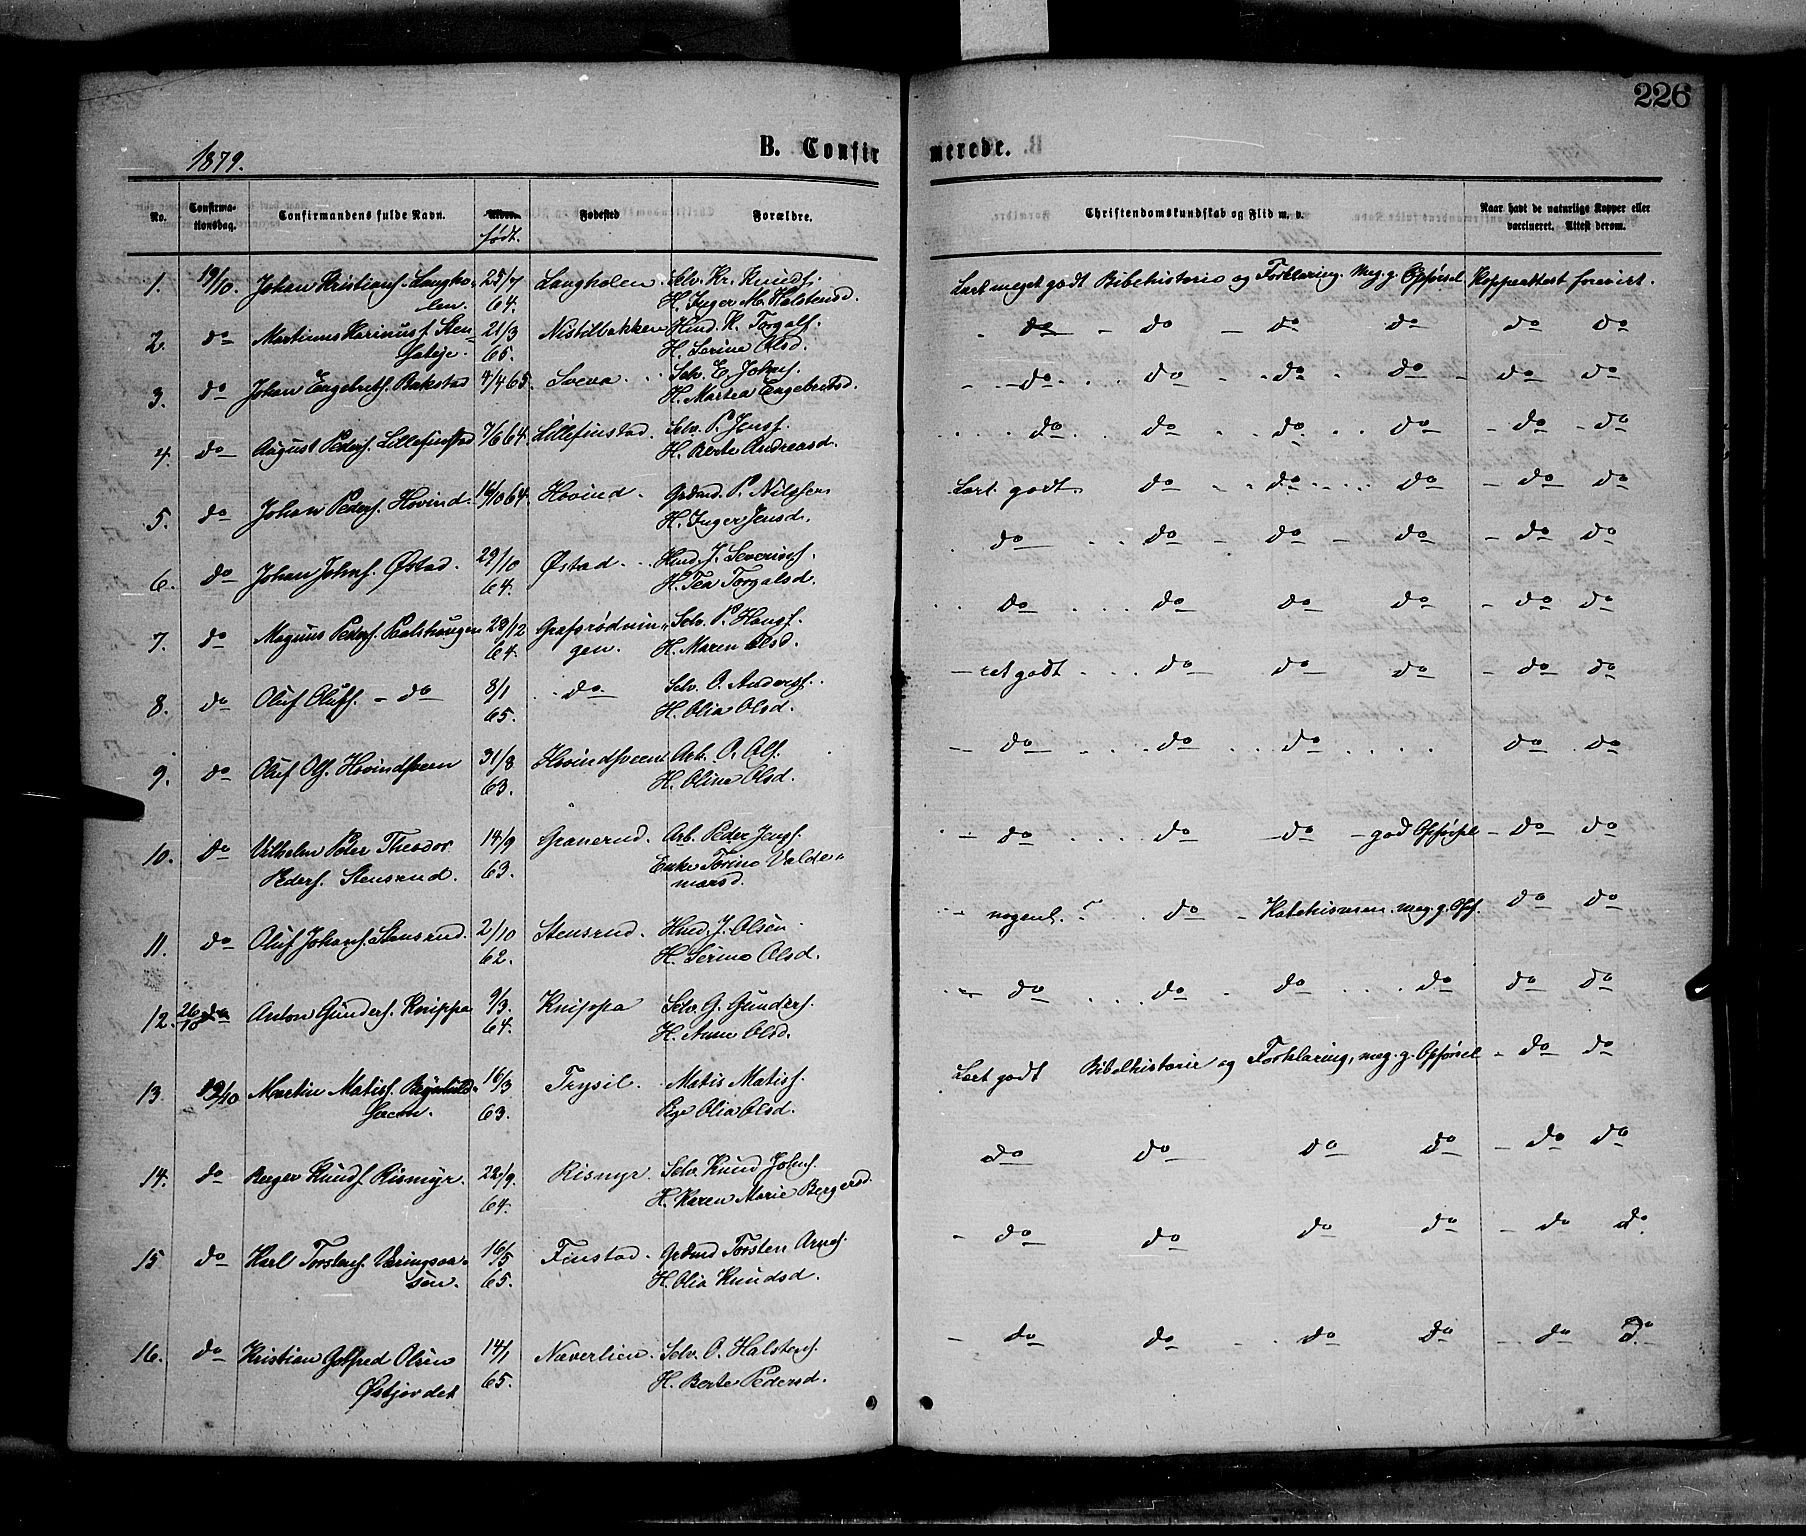 226
1879.
B. Confirmerede.
No. Confirmationsdag. Confirmandens fulde Navn. Alder. født. Fødested Forældre. Christendomskundskab og Flid m. v. Naar havt de naturlige Kopper eller vaccineret. Attest derom.
1. 19/10. Johan Kristians. Langho- 25/7 Langholen. Selv. Kr. Knuds. Lært meget godt Bibehistorie og Forklaring. Meg. g. Opførsel Koppeattest forevist.
len. 64. H. Inger M. Halstensd.
2. do Martinus Karinus f. Sten- 21/3 Nistilbakken Huud. K. Torgals. do do do do do do
65. H. Serine Olsd.
3. do Johan Engebrets. Bakstad 4/4 65. Sveva Selv. E. Johns. do do do do do do
H. Martea Engebretsd.
4. do August Peders. Lillefinstad 7/6 64. Lillefinstad. Selv. P. Jens. do do do do do do
H. Berte Andreasd.
5. do Johan Peders. Hovind. 14/10 64. Hovind. Grdmd. P. Nilssen Lært godt. do do do do do
H. Inger Jensd.
6. do Johan Johns. Østad. 29/10 Østad. Huud. J. Severins. do do do do do do
64. H. Tea Torgalsd.
7. do Magnus Peders. Paalshaugen 28/12 Grafsrødvin- Selv. P. Hans. do do do do do do
64. gen. H. Maren Olsd.
8. do Oluf Olufs. - do 8/1 do Selv. O. Anders. ret godt do do do do do
65. H. Olia Olsd.
9. do Oluf Ols. Hovindsveen 31/8 Hovindsveen Arb. O. Ols. do do do do do
63. H. Oline Olsd.
10. do Vilhelm Peder Theodor 14/9 Granerud. Arb. Peder Jens. do do do god Opførsel do do
Peders. Stensrud. 63. Enke Torine Valde-
marsd.
11. do Oluf Johans. Stensrud. 2/10 Stensrud. Huud. J. Olsen nogenl. do Katekismen. meg. g. Opf. do do
62. H. Serine Olsd.
12. 26/10 do Anton Gunders. Knippa 9/3. Knippa Selv. G. Gunders. do do do do do do
64. H. Anne Olsd.
13. 19/10 Martin Matiss. 16/3 Trysil. Matis Matiss. Lært godt Bibelhistorie og Forklaring, meg. g. Opførsel do do
63. Pige Olia Olsd.
14. do Berger Knuds. Rismyr. 22/9 Rismyr. Selv. Knud Johns. do do do do do do
64. H. Karen Marie Bergersd.
15 do Karl Torstens. Væringsaa- 16/5 Finstad. Grdmd Torsten Arnes. do do do do do do.
sen. 65. H. Olia Knudsd.
16. do Kristian Gotfred Olsen 14/1 Næverlien. Selv. O. Halstens. do do do do do do.
Østjordet 65. H. Berte Pedersd.